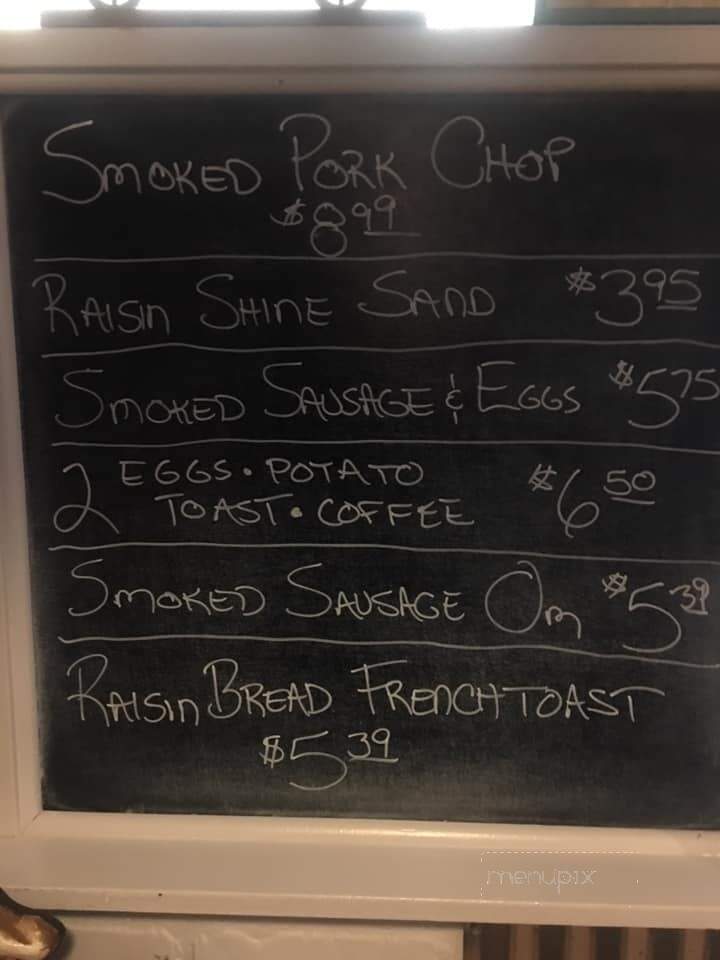 SMOKED PORK CHOP
$8.99
RAISIN SHINE SAND $3.95
SMOKED SAUSAGE & EGGS $5.75
2 EGGS • POTATO
TOAST • COFFEE $6.50
SMOKED SAUSAGE OM $5.39
RAISIN BREAD FRENCH TOAST
$5.39
menupix